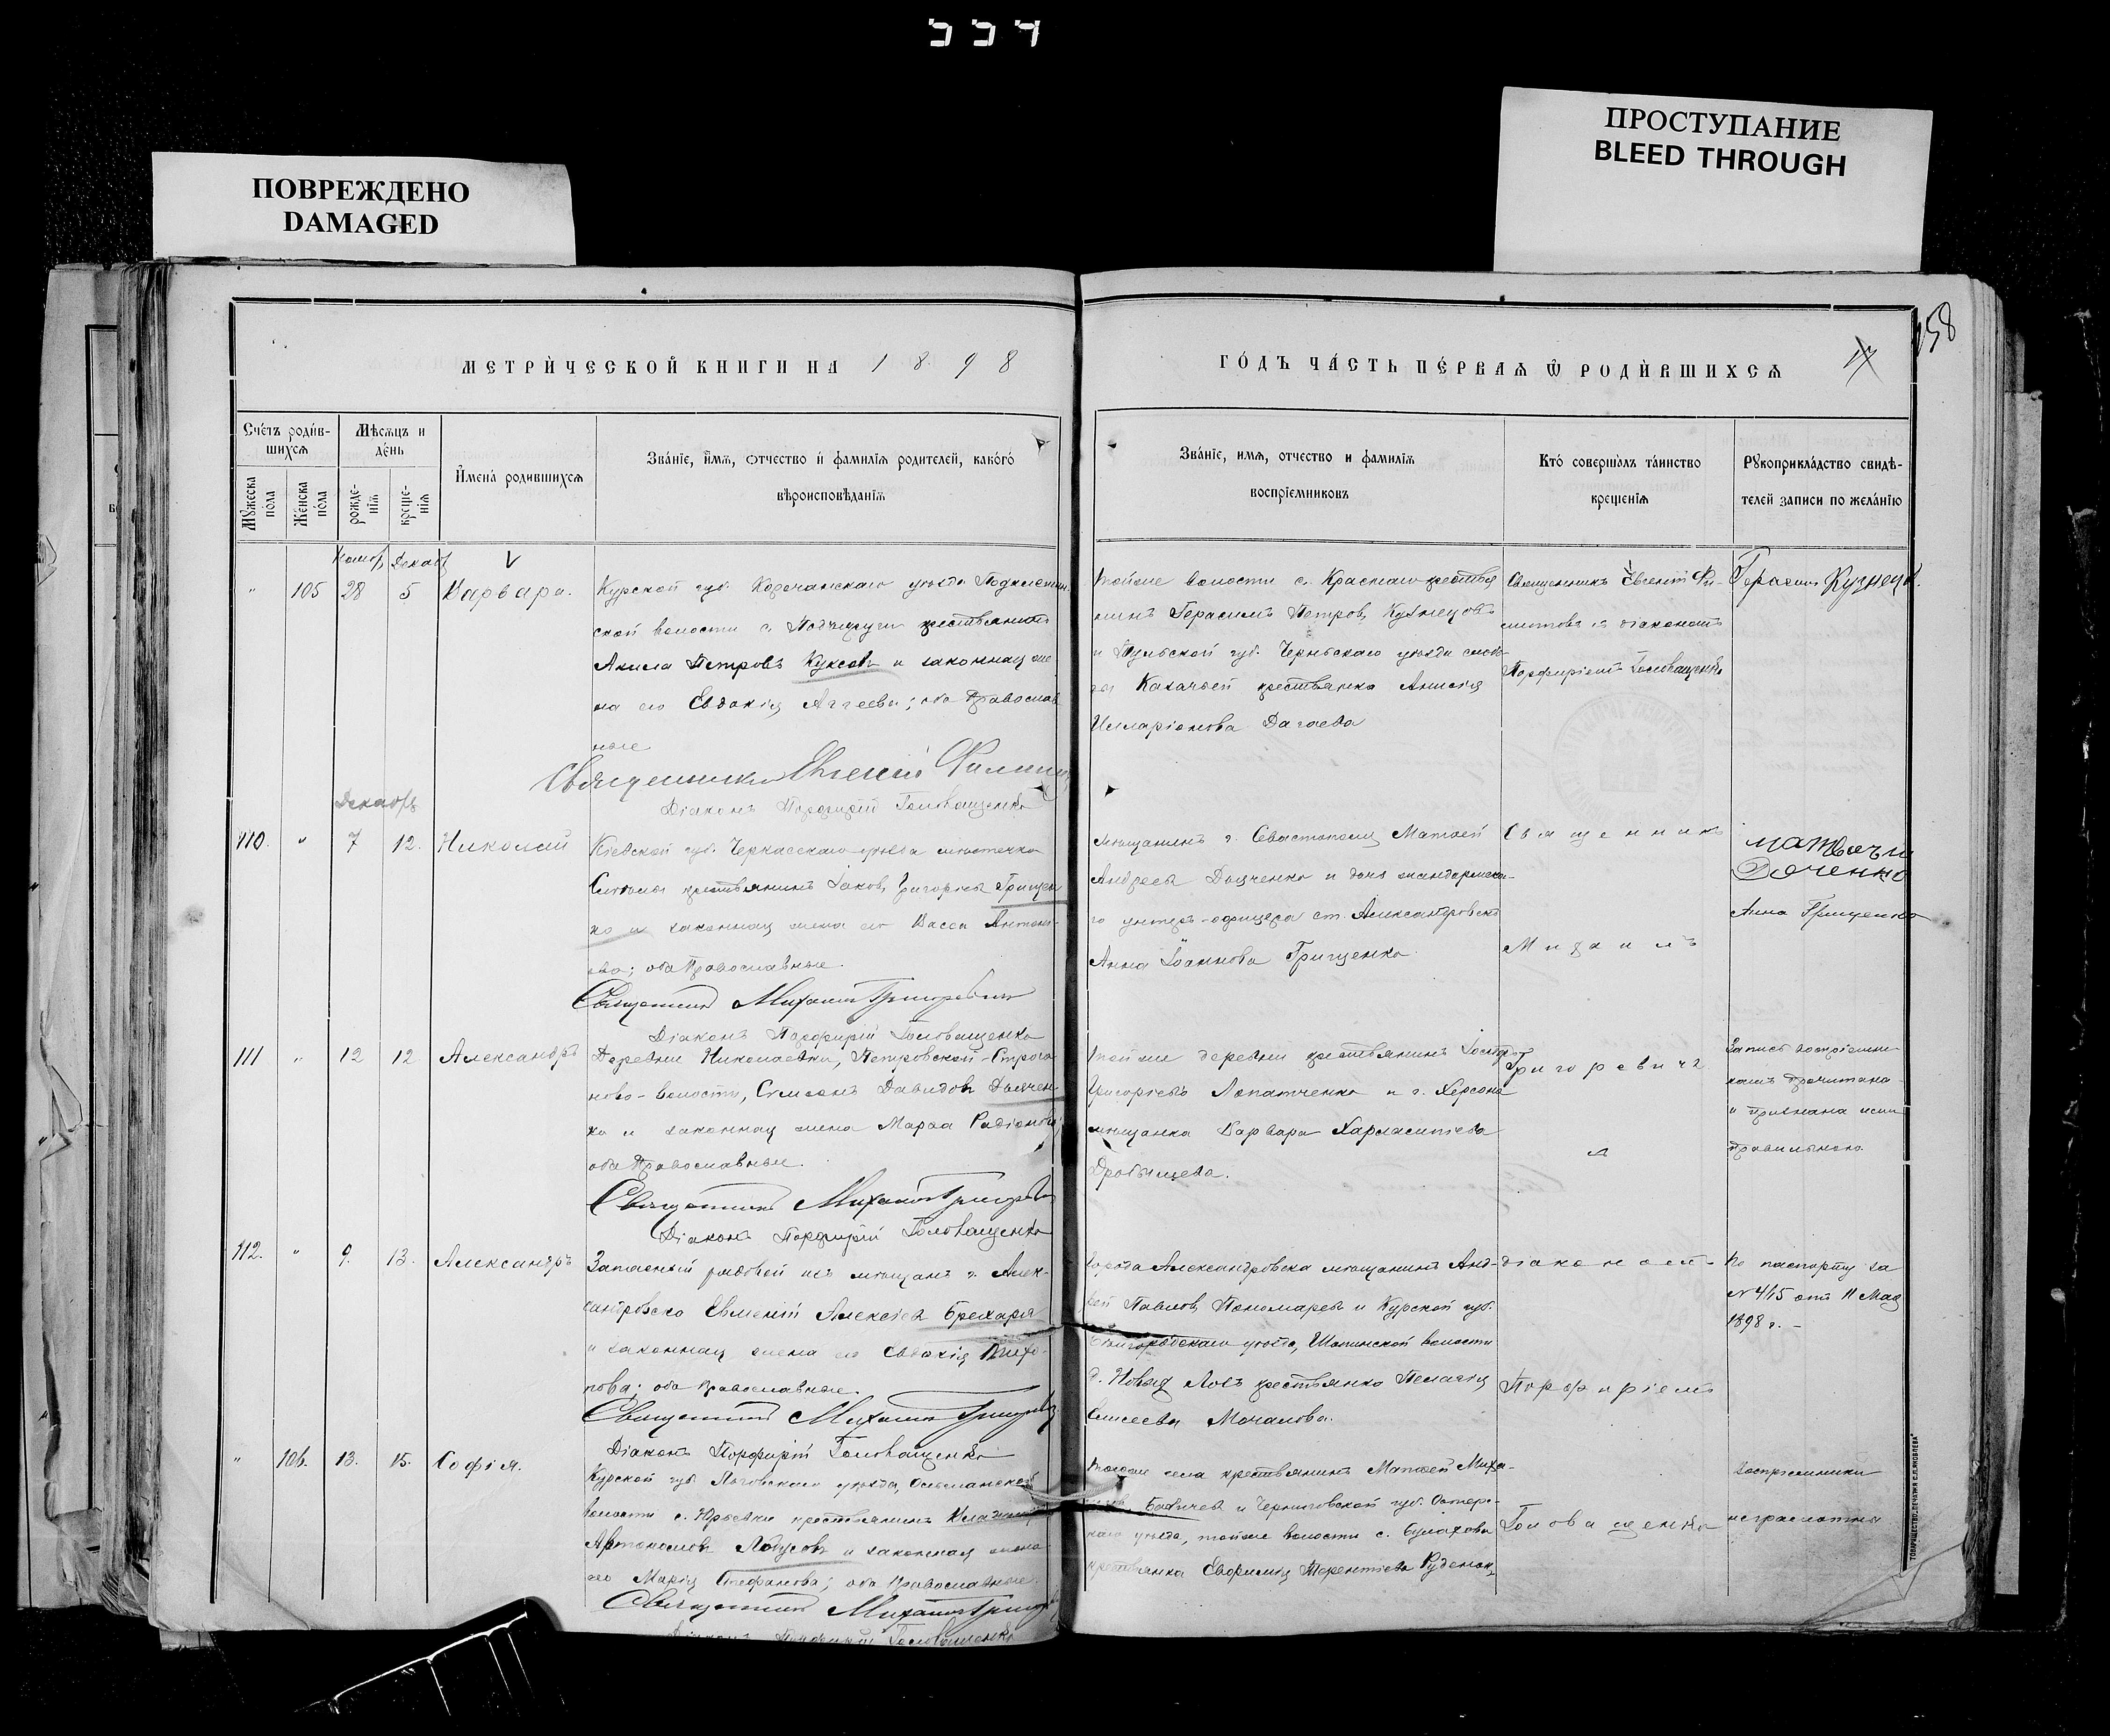 ПОВРЕЖДЕНО
DAMAGED
ПРОСТУПАНИЕ
BLEED THROUGH
158
МЕТРИ́ЧЕСКОЙ КНИГИ НА 1898
ГО́ДЪ ЧА́СТЬ ПЕ́РВАѦ Ѿ РОДИ́ВШИХСѦ
17
Сче́тъ роди́в-
шихсѧ
Мѣсѧцъ и
де́нь
Мꙋжеска
по́ла
Же́нска
по́ла
рожде-
нїѧ
креще-
нїѧ
И҆мена̀ роди́вшихсѧ
Зва́нїе, и҆́мѧ, ѻтчество и҆ фамилїѧ родителей, како́гѡ
вѣроисповѣданїѧ
Зва́нїе, имѧ, отчество и фамилїѧ
воспрїемниковъ
Кто́ соверша́лъ та́инство
креще́нїѧ
Рꙋкоприкла́дство свидѣ-
телей записи по жела́нїю
Декаб
„ 105 28 5 Варвара.
Курской губ. Корочанскаго уѣзда
ской волости с. крестьянинъ
Акила Петровъ Куксовъ и законная же
на его Евдокія Аггеева; оба Православ
ные
Священникъ Евгеній
Діаконъ Порфирій Головащенко
тойже волости с. Краснаго крестья
нинъ Герасимъ Петровъ Кузнецовъ
и Тульской губ. Черньскаго уѣзда слобо-
ды Казачьей крестьянка Анисія
Илларіонова Дагаева
Священникъ Евгеній Фи-
съ діакономъ
Порфиріемъ Головащенко
Герасим Кузнецов.
Декабрь
110. „ 7 12. Николай
Кіевской губ. Черкасскаго уѣзда мѣстечка
Смѣлы крестьянинъ Іаковъ Григорьев Грищен
ко и законная жена его Васса Антоно-
ва; оба Православные.
Священникъ Михаилъ Григоревичъ
Діаконъ Порфирій Головащенко
мѣщанинъ г. Севастополя Матвей
Андреев Дяченко и жандармска-
го унтеръ-офицера ст. Александровскъ
Анна Іоаннова Грищенко.
Священникъ
Михаилъ
Матвѣй
Дяченко
Анна Грищенко
111 „ 12 12 Александръ
Деревни Николаевки, Петровской-Строга
ново-волости, Симеонъ Давидовъ Дьячен
ко и законная жена Марѳа Радіонова,
оба Православные.
Священникъ Михаилъ Григоревичъ
Діаконъ Порфирій Головащенко
тойже деревни крестьянинъ
Григорьевъ Лопатченко и г. Херсона
мѣщанка Варвара Харлампіева
Дробышева.
Григоревичъ
съ
Запись воспріемни-
камъ прочитана
и признана ими
правильною.
112. „ 9. 13. Александръ
Запасный рядовой изъ мѣщанъ г. Алек-
сандровска Евменій Алексіев Брехаря
и законная жена его Евдокія
оба Православные.
Священникъ Михаилъ Григоревичъ
Діаконъ Порфирій Головащенко
города Александровска мѣщанинъ Анд-
рей Павловъ Пономаревъ и Курской губ.
уѣзда, Шопинской волости
д. Новыя Лозъ крестьянка Пелагія
Елисеева Мочалова.
діакономъ
Порфиріемъ
По паспорту за
№ 415 отъ 11 Мая
1898 г. -
„ 106. 13. 15. Софія.
Курской губ. Льговскаго уѣзда,
волости с. Юрьевки крестьянинъ Владимиръ
Артамоновъ и законная жена
его Марія Стефанова; оба Православные.
Священникъ Михаилъ Григоревичъ
Діаконъ Порфирій Головащенко
тогоже села крестьянинъ Матвей Миха-
Бабичев и Черниговской губ. Остер-
скаго уѣзда, тойже волости с. Булахова
крестьянка Евфимія Терентіева Руденок,
Головащенко
Воспріемники
неграмотны
ТОВАРИЩЕСТВО „ПЕЧАТНЯ С.П.ЯКОВЛЕВА"